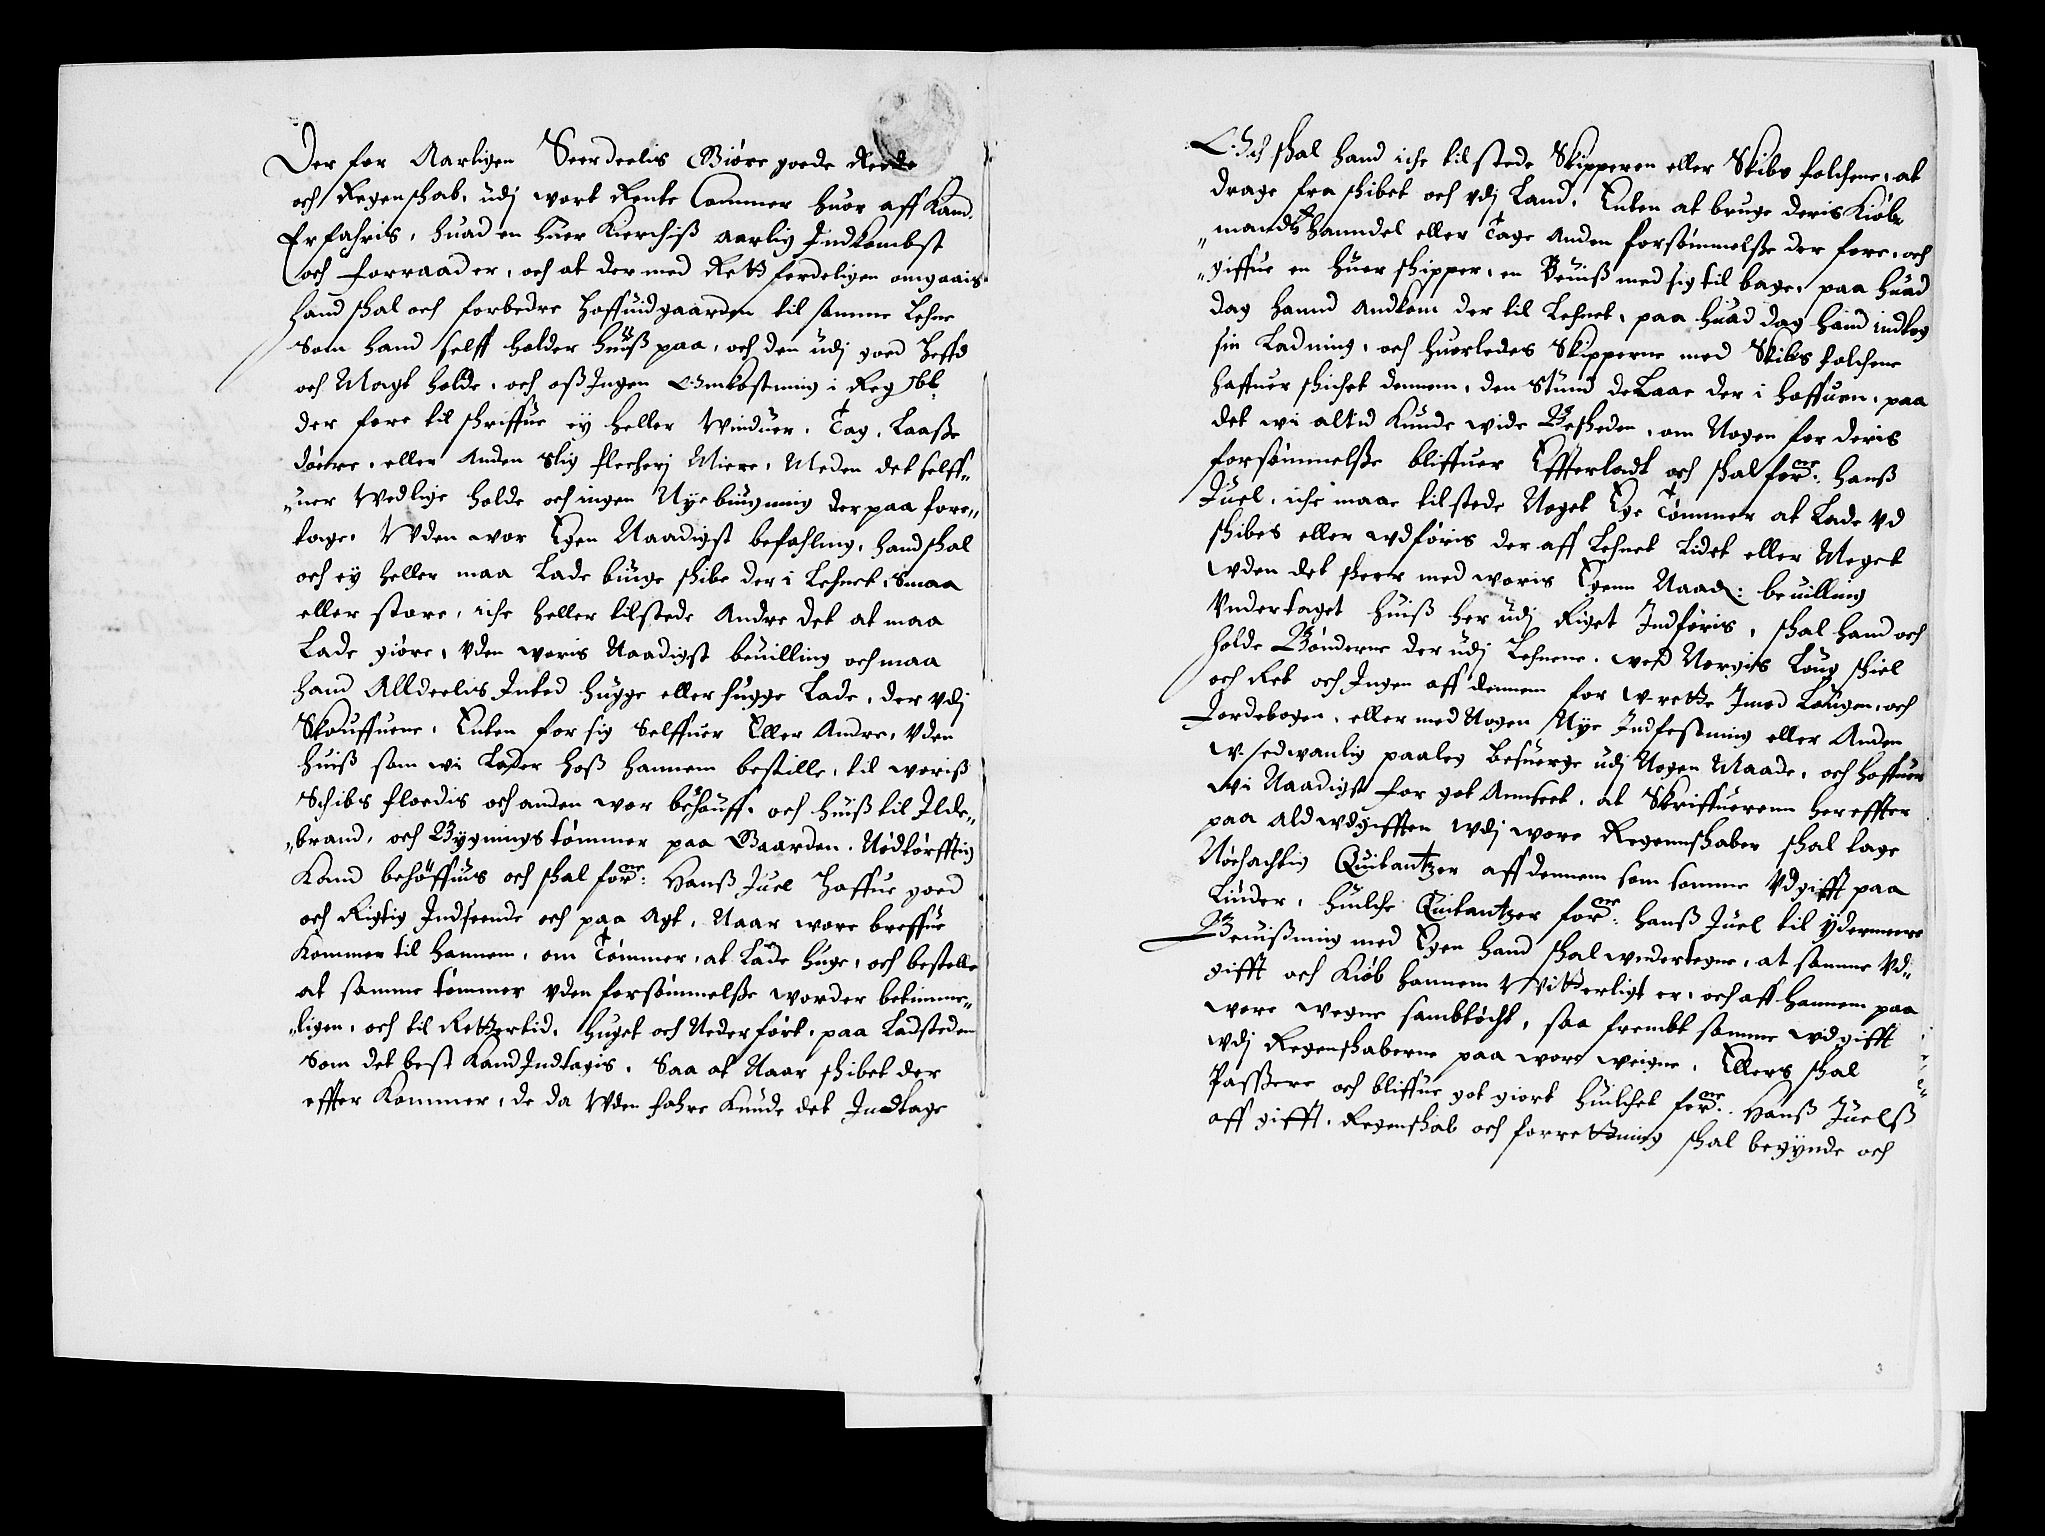 Der for Aarligen Seerdeelis Giöre goede Reede
och Regenskab, udj wort Rente Cammer huor aff kand
Erfahris, huad en huer Kierchis aarlig Indkombst
och forraad er, och at der med Rettferdeligen omgaais.
hand skal och forbedre Hoffuidgaarden til samme Lehne
Som hand selff holder huuß paa, och den udj goed Heffd
och Magt holde, och oß Ingen Omkostning i Regskb:
der fore til schriffue ey heller Winduer, Tag, Laaße
döerre, eller Anden slig fleckerj Miere, Meden det selff„
„uer Wedlige holde och ingen Nye biugning der paa fore„
tage, Vden wor Egen Naadigst befahling, hand skal
och ey heller maa Lade biuge skibe der i Lehnet, Smaa
eller store, iche heller tilstede Andre det at maa
Lade giöre, Vden woris Naadigst beuilling och maa
hand Alldeelis Inted hugge eller hugge Lade, der vdj
Skouffuene, Enten for sig Selffuer Eller Andre, Vden
huiß som wi Lader hoß hannem bestille, til woriß
Schibs floedis och anden wor behouff, och huiß til Ilde„
„brand, och Bygnings tömmer paa Gaarden, Nödtörfftig
Kand behöffuis och skal forne: Hanß Juel Haffue goed
och Rigtig Indseende och paa Agt, Naar wore breffue
Kommer til hannem, om Tömmer, at Lade huge, och bestelle
at samme tömmer vden forsömmelße worder betimme„
„ligen, och til Rettertid, huget och Nederfört, paa Ladstederne
Som det best Kand Indtagis, Saa at Naar skibet der
effter Kommer, de da Vden fahre Kunde det Indtage
Och skal hand iche tilstede Skipperen eller Skibs folchene, at
drage fra skibet och vdj Land, Enten at bruge deris Kiöb„
„mands hanndel eller Tage Anden forsömmelße der fore, och
„giffue en huer skipper, en Beuiß med sig til bage, paa huad
dag hannd Andkom der til Lehnet, paa huad dag hand indtog
sin Ladning, och huorledes Skipperne med Skibs folchene
haffuer skicket dennem, den stund de Laae der i haffuen, paa
det wi altid Kunde wide Beskeden, om Nogen for deris
forsömmelße bliffuer Effterladt och skal forne: Hanß
Juel, iche maae tilstede Noget Ege Tömmer at Lade vd
skibes eller wdföris der aff Lehnet Lidet eller Meget
wden det skeer med woris Egenn Naad: beuilling
Vndertaget huiß her udj Riget Indföris, skal hand och
holde Bönderne der udj Lehnene, wed Norgis Loug skiel
och Ret och Ingen aff dennem for wrette Imod Lougen, och
Jordebogen, eller med Nogen Nye Indfestning eller Anden
w-sedwanlig paaleg Besuerge udj Nogen Maade, och haffuer
wi Naadigst for got Anseet, at Skriffuerenn her effter
paa ald wdgifften Vdj wore Regennskaber skal tage
Nöchachtig Quitantzer aff dennem som samme Vdgifft paa
Linder, huilche Quitantzer forne: Hanß Juel til ydermeere
Beuißning med Egen hand skal wndertegne, at samme Vd„
gifft och Kiöb hannem Witterligt er, och aff hannem paa
wore wegne samböcht, saa frembt samme wdgifft
wdj Regenskaberne paa wore weigne, Ellers skal
Passere och bliffue got giort huilchet forne: Hanß Juelß
aff gifft, Regenskab och forrettning skal begynde och
3